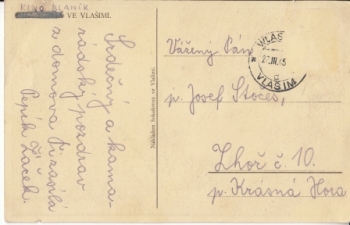 KINO BLANÍK
VE VLAŠIMI.
Srdečný a kama-
rádský pozdrav
z domova
Pepík Žáček
Nákladem Sokolovny ve Vlašimi.
VLAŠIM
VLAŠIM
Vážený Pán
p. Josef
Zhoř č. 10.
p. Krásná Hora